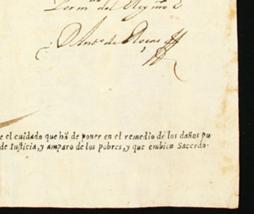 del Reyno
D Antº de
e el cuidado que hã de poner en el remedio de los daños pu
de justicia, y amparo de los pobres, y que embien Sacerdo-